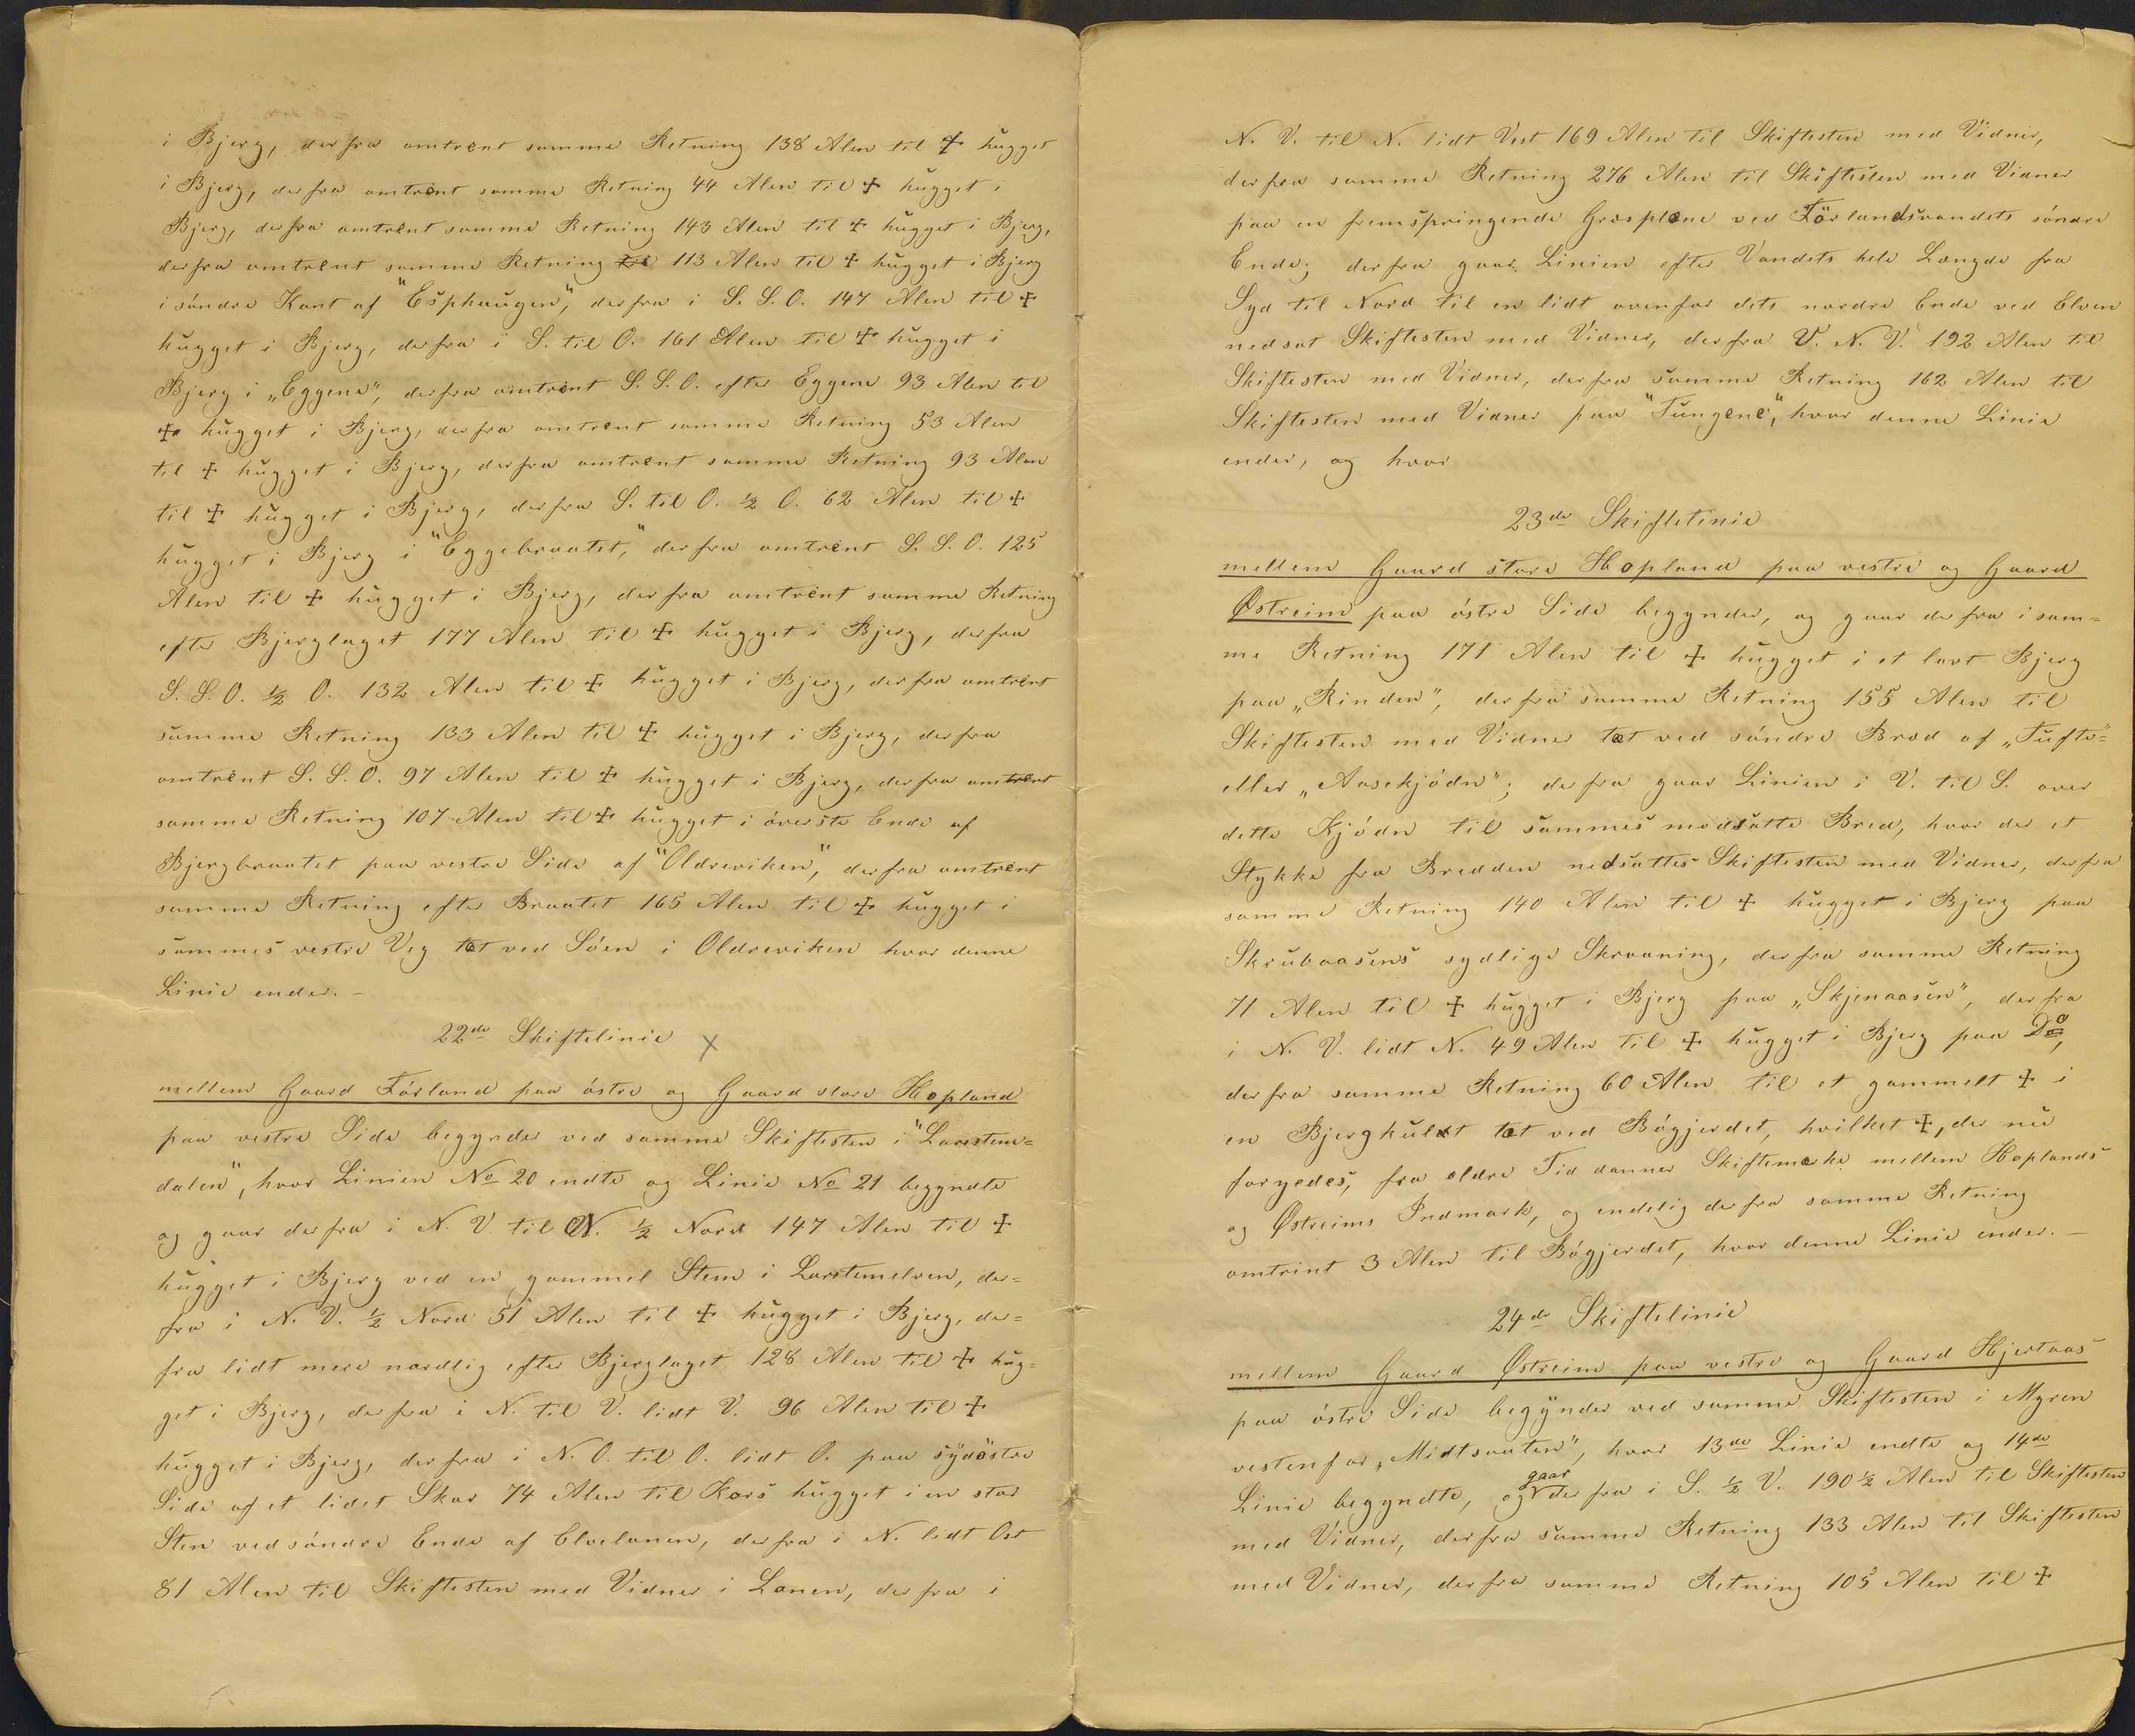 i Bjerg, derfra omtrent samme Retning 138 Alen til ☩ hugget
i Bjerg, derfra omtrent samme Retning 44 Alen til ☩ hugget i
Bjerg, derfra omtrent samme Retning 143 Alen til ☩ hugget i Bjerg,
derfra omtrent samme Retning til 113 Alen til ☩ hugget i Bjerg
i söndre Kant af "Esphaugen", derfra i S. S. O. 147 Alen til ☩
hugget i Bjerg, derfra i S. til O. 161 Alen til ☩ hugget i
Bjerg i „Eggene", derfra omtrent S. S. O. efter Eggene 93 Alen til
☩ hugget i Bjerg, derfra omtrent samme Retning 53 Alen
til ☩ hugget i Bjerg, derfra omtrent samme Retning 93 Alen
til ☩ hugget i Bjerg, derfra S. til O. ½ O. 62 Alen til ☩
hugget i Bjerg i "Eggebraatet," derfra omtrent S. S. O. 125
Alen til ☩ hugget i Bjerg, derfra omtrent samme Retning
efter Bjerglaget 177 Alen til ☩ hugget i Bjerg, derfra
S. S. O. ½ O. 132 Alen til ☩ hugget i Bjerg, derfra omtrent
samme Retning 133 Alen til ☩ hugget i Bjerg, derfra
omtrent S. S. O. 97 Alen til ☩ hugget i Bjerg, derfra omtrent
samme Retning 107 Alen til ☩ hugget i överste Ende af
Bjergbraatet paa vestre Side af "Oldreviken", derfra omtrent
samme Retning efter Braatet 165 Alen til ☩ hugget i
sammes vestre Veg tæt ved Söen i Oldreviken hvor denne
Linie ender. –
22de Skiftelinie X
mellem Gaard Förland paa östre og Gaard store Hopland
paa vestre Side begynder ved samme Skiftesten i "Larstem=
dalen", hvor Linien No 20 endte og Linie No 21 begyndte
og gaar derfra i N. V. til N. ½ Nord 147 Alen til ☩
hugget i Bjerg ved en gammel Stem i Larstemelven, der=
fra i N. V. ½ Nord 51 Alen til ☩ hugget i Bjerg, der=
fra lidt mere nordlig efter Bjerglaget 128 Alen til ☩ hug=
get i Bjerg, derfra i N. til V. lidt V. 96 Alen til ☩
hugget i Bjerg, derfra i N. O. til O. lidt O. paa sydöstre
Side af et lidet Skar 74 Alen til Kors hugget i en stor
Sten ved söndre Ende af Elvelonen, derfra i N. lidt Ost
81 Alen til Skiftesten med Vidner i Lonen, derfra i
N. V. til N. lidt Vest 169 Alen til Skiftesten med Vidner,
derfra samme Retning 276 Alen til Skiftesten med Vidner
paa en fremspringende Græsplæne ved Förlandsvandets söndre
Ende; derfra gaar Linien efter Vandets hele Længde fra
Syd til Nord til en lidt ovenfor dets nordre Ende ved Elven
nedsat Skiftesten med Vidner, derfra V. N. V. 192 Alen til
Skiftesten med Vidner, derfra samme Retning 162 Alen til
Skiftesten med Vidner paa "Tungene", hvor denne Linie
ender, og hvor
23de Skiftelinie
mellem Gaard store Hopland paa vestre og Gaard
Østreim paa östre Side begynder, og gaar derfra i sam=
me Retning 171 Alen til ☩ hugget i et lavt Bjerg
paa „Rinden", derfra samme Retning 155 Alen til
Skiftesten med Vidner tæt ved söndre Bred af „Tufte"=
eller „Aasekjödn"; derfra gaar Linien i V. til S. over
dette Kjödn til sammes modsatte Bred, hvor der et
Stykke fra Bredden nedsattes Skiftesten med Vidner, derfra
samme Retning 140 Alen til ☩ hugget i Bjerg paa
Skrubaasens sydlige Skraaning, derfra samme Retning
71 Alen til ☩ hugget i Bjerg paa „Skjenaasen", derfra
i N. V. lidt N. 49 Alen til ☩ hugget i Bjerg paa Do,
derfra samme Retning 60 Alen til et gammelt ☩ i
en Bjergkult tæt ved Bögjerdet, hvilket ☩, der nu
fornyedes, fra ældre Tid danner Skiftemærke mellem Hoplands
og Østreims Indmark, og endelig derfra samme Retning
omtrint 3 Alen til Bögjerdet, hvor denne Linie ender. –
24de Skiftelinie
mellem Gaard Østreim paa vestre og Gaard Hjertaas
paa östre Side begynder ved samme Skiftesten i Myren
vestenfor „Midtsaaten", hvor 13de Linie endte og 14de
Linie begyndte, og gaar derfra i S. ½ V. 190½ Alen til Skiftesten
med Vidner, derfra samme Retning 133 Alen til Skiftesten
med Vidner, derfra samme Retning 105 Alen til ☩